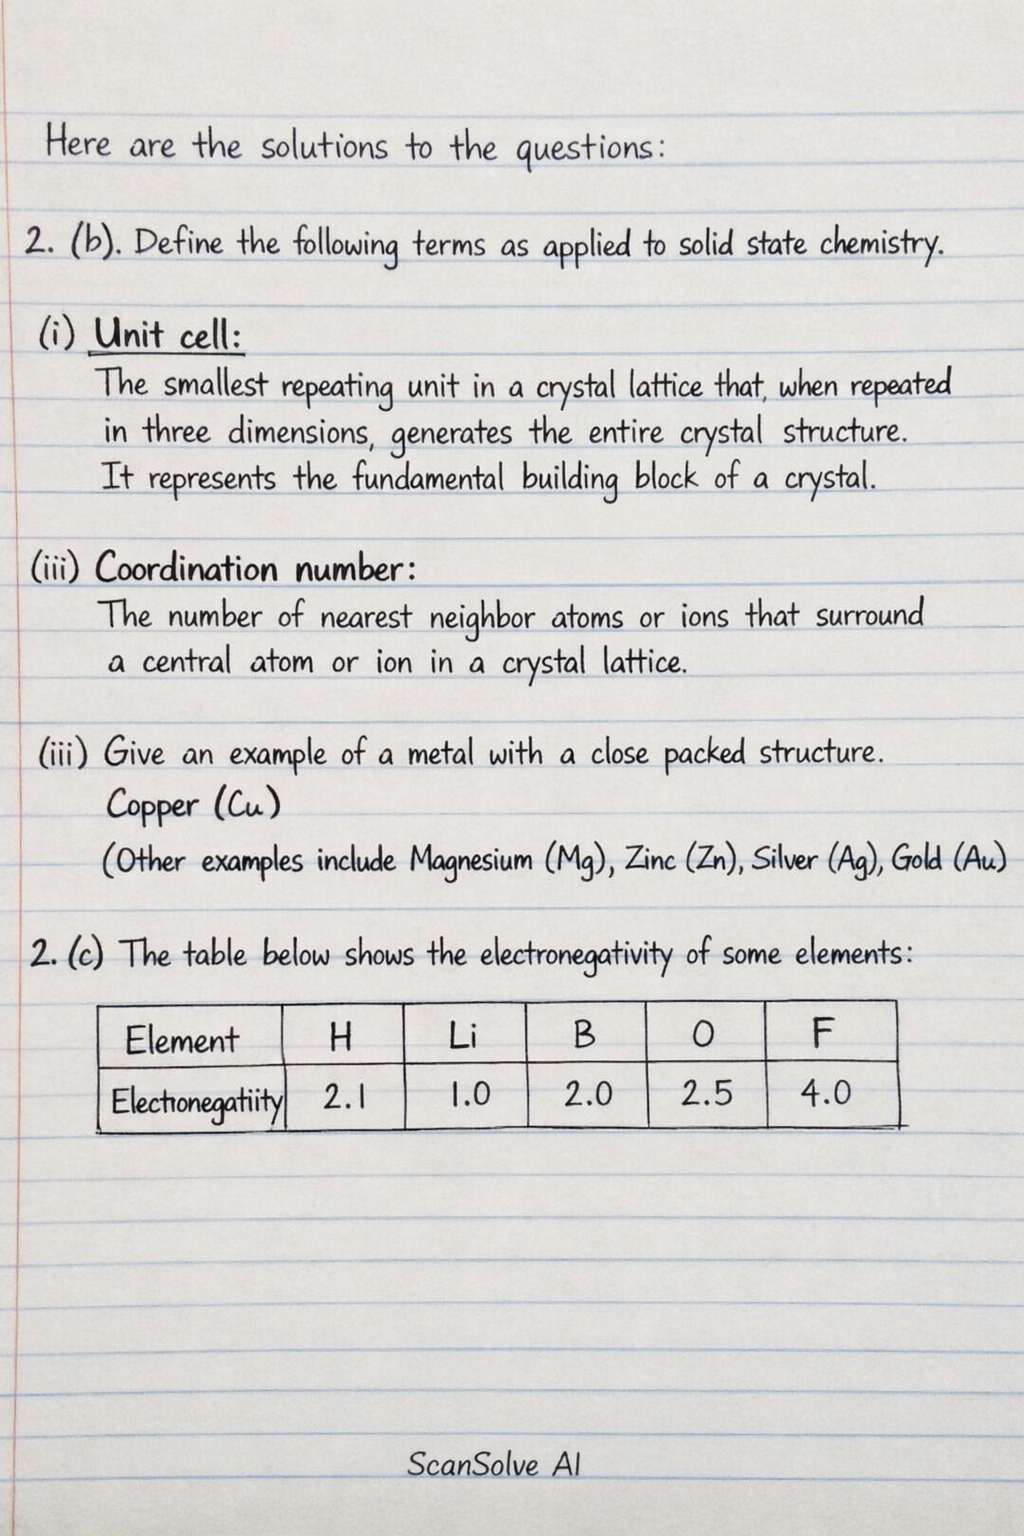 Here are the solutions to the questions:
2. (b). Define the following terms as applied to solid state chemistry.
(i) Unit cell:
The smallest repeating unit in a crystal lattice that, when repeated
in three dimensions, generates the entire crystal structure.
It represents the fundamental building block of a crystal.
(iii) Coordination number:
The number of nearest neighbor atoms or ions that surround
a central atom or ion in a crystal lattice.
(iii) Give an example of a metal with a close packed structure.
Copper (Cu)
(Other examples include Magnesium (Mg), Zinc (Zn), Silver (Ag), Gold (Au)
2. (c) The table below shows the electronegativity of some elements:
Element H Li B O F
Electronegatiity 2.1 1.0 2.0 2.5 4.0
ScanSolve AI